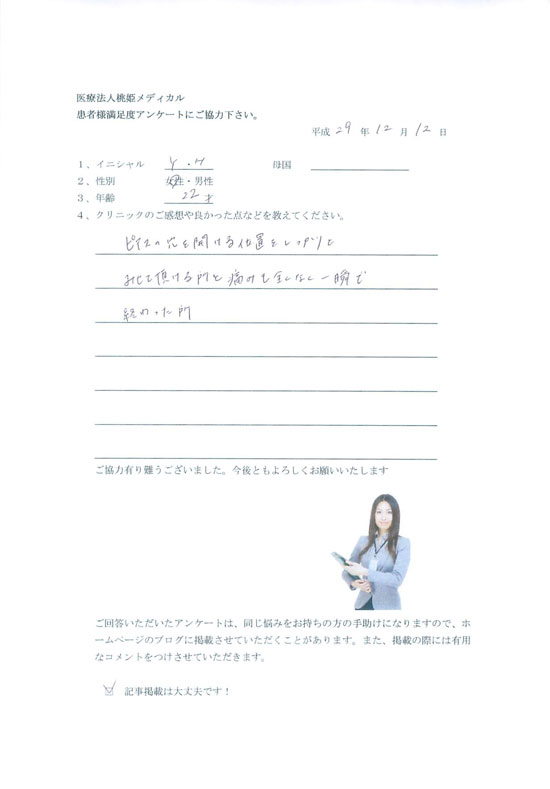 医療法人桃姫メディカル
患者様満足度アンケートにご協力下さい。
平成 29 年 12 月 12 日
1、イニシャル Y.H 母国
2、性別 女性・男性
3、年齢 22才
4、クリニックのご感想や良かった点などを教えてください。
ピアスの穴を開ける位置をしっかりと
みて頂ける所と痛みも全くなく一瞬で
終わった所
ご協力有り難うございました。今後ともよろしくお願いいたします
ご回答いただいたアンケートは、同じ悩みをお持ちの方の手助けになりますので、ホ
ームページのブログに掲載させていただくことがあります。また、掲載の際には有用
なコメントをつけさせていただきます。
記事掲載は大丈夫です！